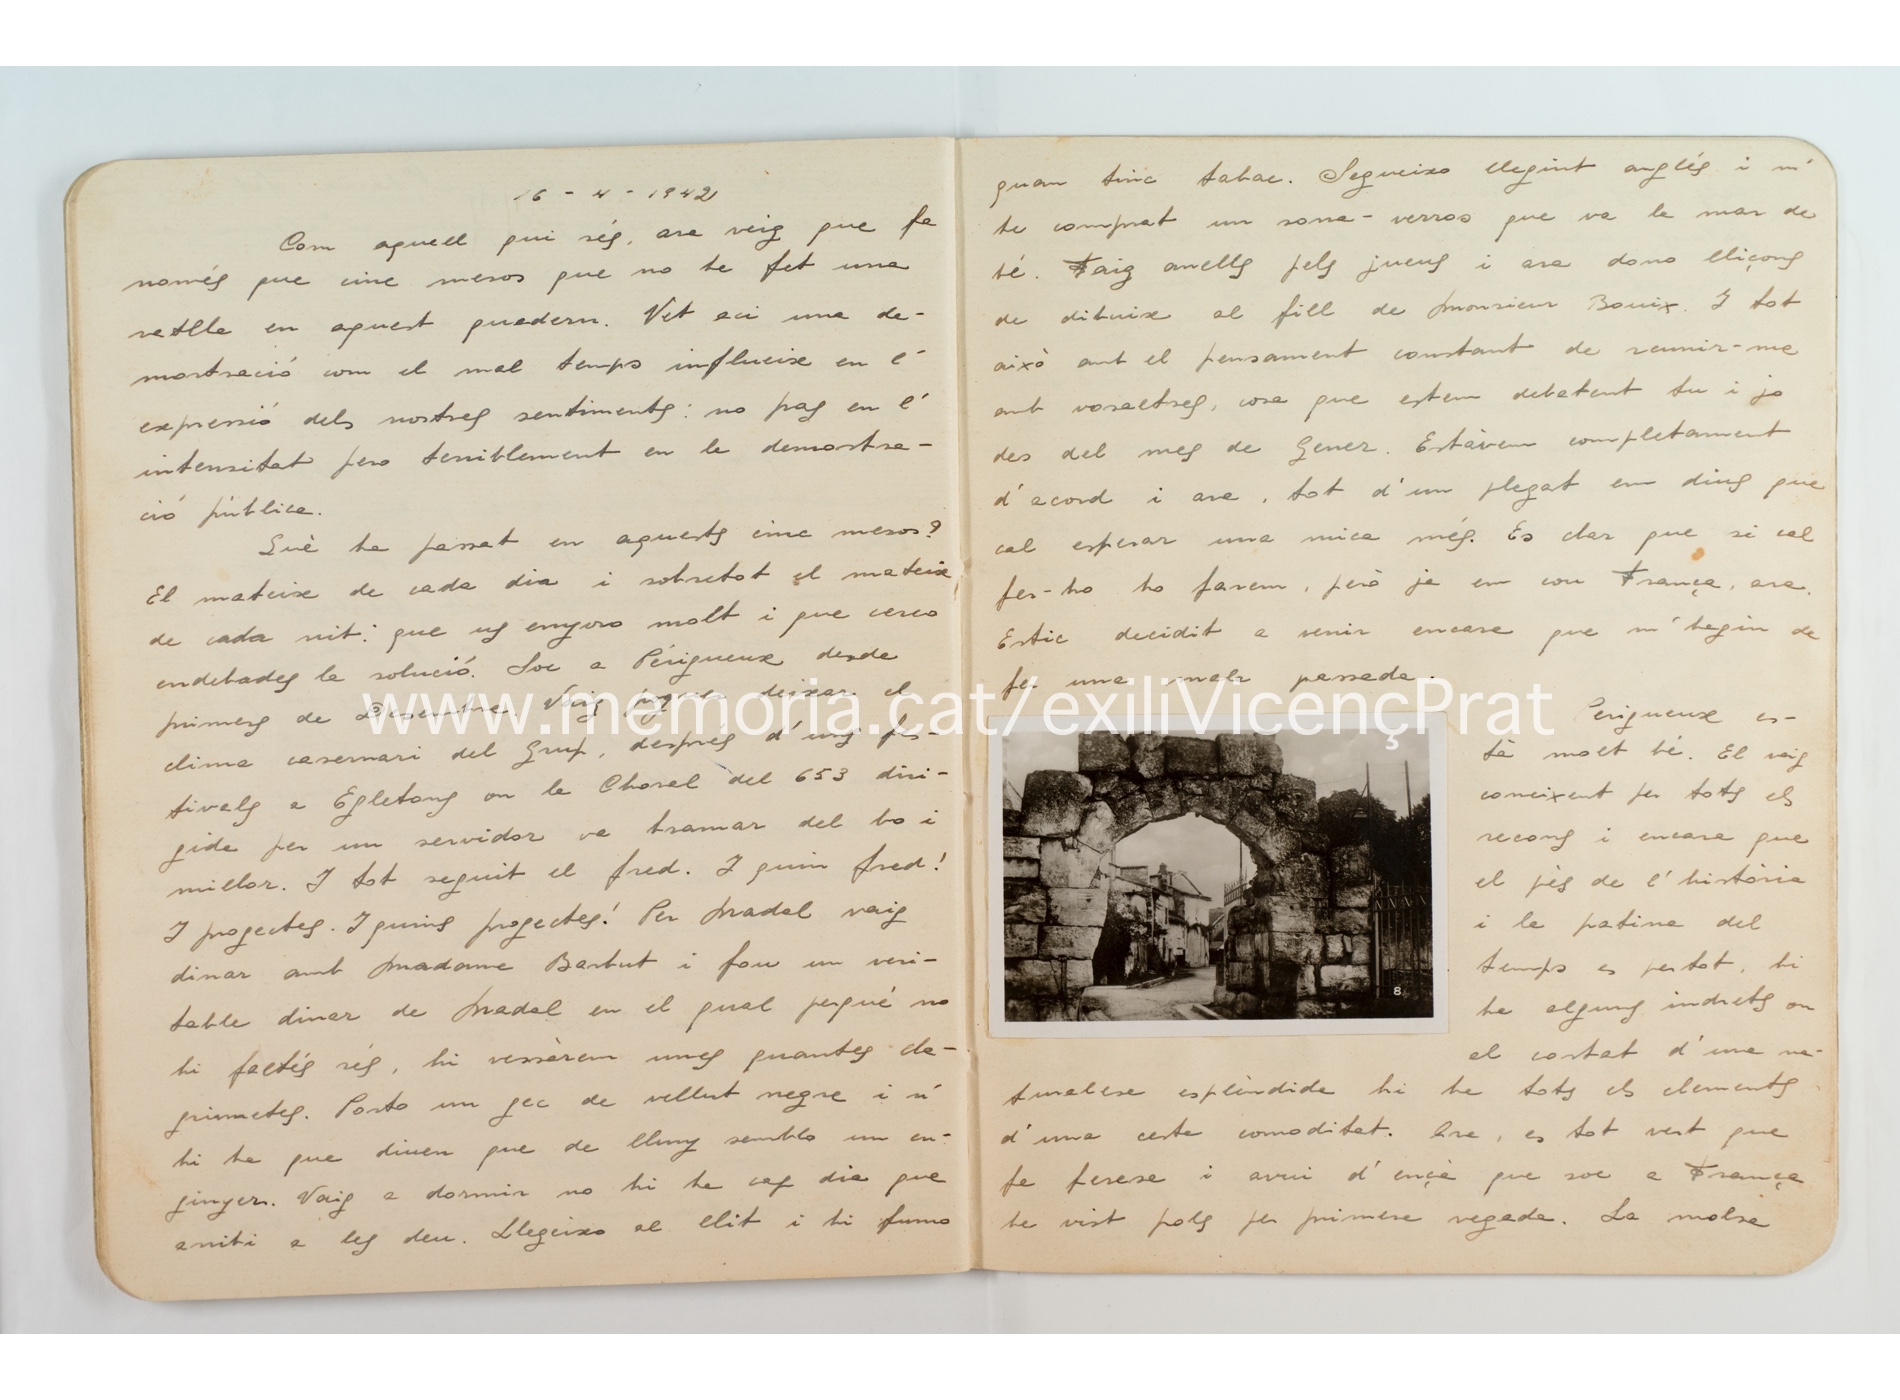 16 - 4 - 1942
Com aquell qui rés, ara veig que fa
només que cinc mesos que no he fet una
ratlla en aquest quadern. Vet aci una de-
mostració com el mal temps influeix en l'
expressió dels nostres sentiments: no pas en l'
intensitat pero terriblement en la demostra-
ció pública.
Què ha passat en aquests cinc mesos?
El mateix de cada dia i sobretot el mateix
de cada nit: que us enyoro molt i que cerco
endebades la solució. Soc a Périgueux desde
primers de Desembre. Vaig poguer deixar el
clima casernari del Grup, després d'uns fes-
tivals a Egletons on la Choral del 653 diri-
gida per un servidor va tramar del bo i
millor. I tot seguit el fred. I quin fred!
I projectes. I quins projectes! Per Nadal vaig
dinar amb Madame Barbut i fou un veri-
table dinar de Nadal en el qual perquè no
hi faltés rés, hi vessàrem unes quantes lla-
grimetes. Porto un gec de vellut negre i n'
hi ha que diuen que de lluny semblo un en-
ginyer. Vaig a dormir no hi ha cap dia que
arribi a les deu. Llegeixo al llit i hi fumo
quan tinc tabac. Segueixo llegint anglés i m'
he comprat un sona-verros que va la mar de
bé. Faig anells pels jueus i ara dono lliçons
de dibuix al fill de Monsieur Bouix. I tot
això amb el pensament constant de reunir-me
amb vosaltres, cosa que estem debatent tu i jo
des del mes de Gener. Estàvem completament
d'acord i ara, tot d'un plegat em dius que
cal esperar una mica més. Es clar que si cal
fer-ho ho farem, però ja em cou França, ara.
Estic decidit a venir encara que m'hagin de
fer una mala passada.
www.memoria.cat/exiliVicençPrat
Perigueux es-
tà molt bé. El vaig
coneixent per tots els
recons i encara que
el pès de l'història
i la patina del
temps es pertot, hi
ha alguns indrets on
al costat d'una na-
turalesa esplèndida hi ha tots els elements
d'una certa comoditat. Ara, es tot vert que
fa feresa i avui d'ençà que soc a França
he vist pols per primera vegada. La molsa
8